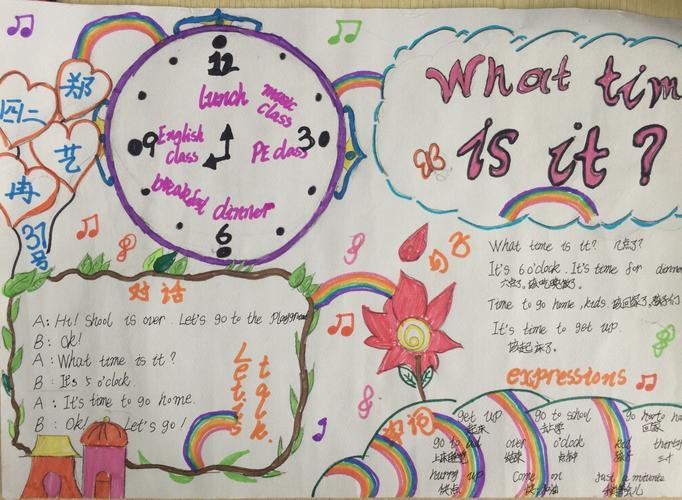 What tim
is it?
郑
四二
艺
冉
37
号
12
Lunch
music
class
9
English
class
PE class
3
breakfast
dinner
6
对话
A: Hi! Shool is over. Let's go to the playground
B: Ok!
A: What time is it?
B: It's 5 o'clock.
A: It's time to go home.
B: Ok! Let's go!
Let's
talk
句子
What time is it? 几点了?
It's 6 o'clock. It's time for dinner
Time to go home, kids.
It's time to get up.
该起床了。
expressions
get up
go to school
go home
起床
去上学
回家
go to bed
over
o'clock
kid
thirty
上床睡觉
结束
点钟
孩子
三十
hurry up
Come on
just a minute
快点